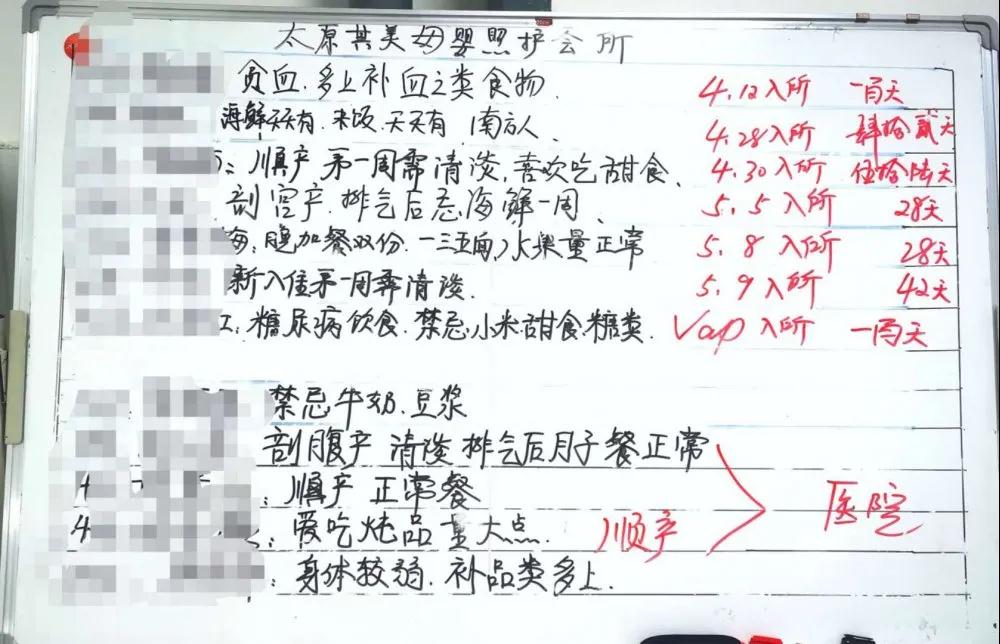 太原其美母婴照护会所
贫血.多上补血之类食物. 4.12入所 一百天
海鲜天天有.米饭.天天有 南方人 4.28入所 肆拾贰天
:顺产 第一周需清淡,喜欢吃甜食、 4.30入所 伍拾陆天
剖宫产.排气后忌海鲜一周、 5.5入所 28天
:晚加餐双份.一三五 水果量正常 5.8入所 28天
新入住第一周需清淡. 5.9入所 42天
:糖尿病饮食.禁忌小米甜食.糖类. 入所
禁忌牛奶.豆浆
剖腹产 清淡 排气后月子餐正常
:顺产 正常餐 医院
:爱吃炖品量大点. 顺产
:身体较弱.补品类多上.